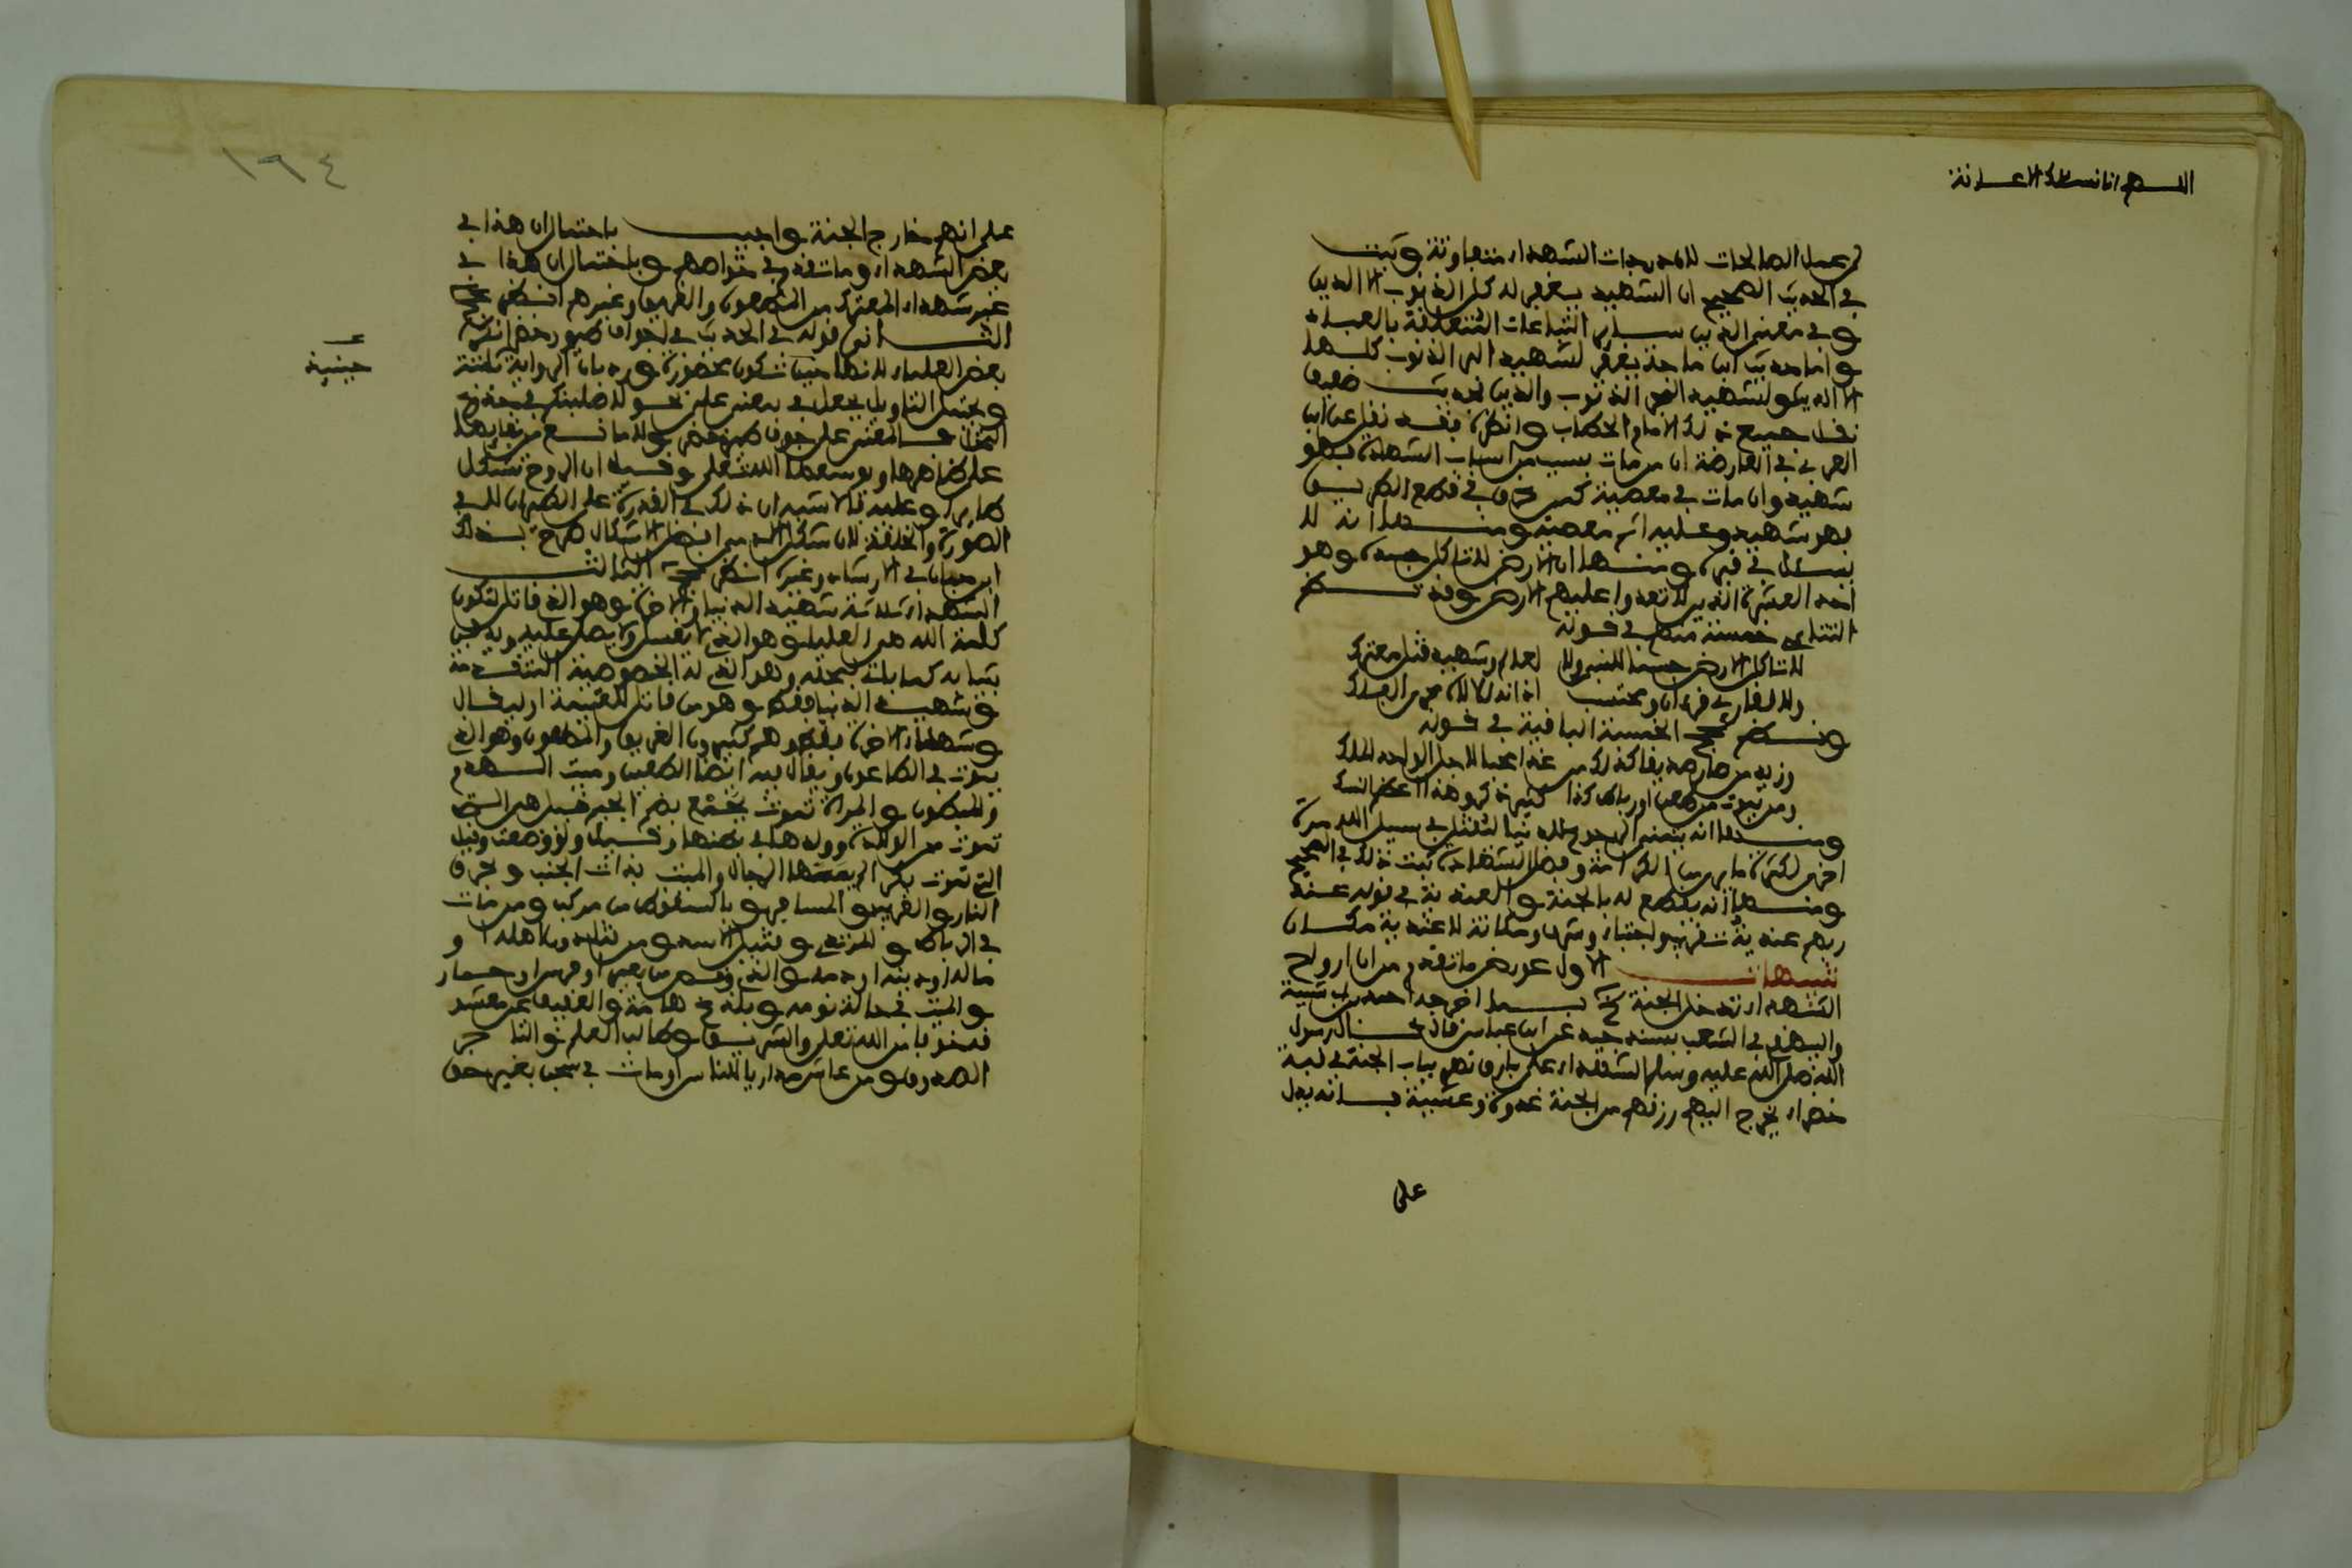 اللهم انا نسئلك الاعانة
من عمل الصالحات لان درجات الشهداء متفاوتة وثبت
في الحديث الصحيح ان الشهيد يغفر له كل الذنوب الا الدين
وفي معنى الدين سائر التباعات المتعلقة بالعباد
واما حديث ابن ماجة يغفر لشهيد البر الذنوب كلها
الا الدين ولشهيد البحر الذنوب والدين فحديث ضعيف
نقل جميع ذلك الامام الحطاب وانظره فقد نقل عن ابن
العربي في العارضة ان من مات بسبب من اسباب الشهادة فهو
شهيد وان مات في معصية كمن غرق في قطع الطريق
فهو شهيد وعليه اثم معصيته ومنها انه لا
يسئل في قبره ومنها ان الارض لا تاكل جسده وهو
احد العشرة الذين لا تعدوا عليهم الارض وقد نظم
التتائي خمسة منهم في قوله
لا تاكل الارض جسما للنبي ولا لعالم وشهيد قتل معترك
ولا لقارئ قرءان ومحتسب اذانه لاله مجري الفلك
ونظم عج الخمسة الباقية في قوله
وزيد من صار صديقا كذلك من غدا محبا لاجل الواحد الملك
ومن يموت بطعن او رباط كذا كثير ذكر وهذا اعظم النسك
ومنها انه يتمنى الرجوع للدنيا ليقتل في سبيل الله مرة
اخرى لكثرة ما يرى من الكرامة وفضل الشهادة ثبت ذلك في الصحيح
ومنها انه يقطع له بالجنة والعندية في قوله عند
ربهم عندية تشريف واجتباء وشرف ومكانة لا عندية مكان
تنبيهات الاول عورض ما تقدم من ان ارواح
الشهداء تدخل الجنة بما اخرجه احمد وابن ابي شيبة
والبيهقي في الشعب بسند جيد عن ابن عباس قال قال رسول
الله صلى الله عليه وسلم الشهداء على بارق نهر بباب الجنة في قبة
خضراء يخرج اليهم رزقهم من الجنة غدوة وعشية فانه يدل
على
١٩٤
على انهم خارج الجنة واجيب باحتمال ان هذا في
بعض الشهداء وما تقدم في خواصهم وباحتمال ان هذا في
غير شهداء المعترك من المطعون والغريق وغيرهم انظر عج
الثاني قوله في الحديث في اجواف طيور خضر انكره
بعض العلماء لانها حينئذ تكون محصورة ورد بان الرواية ثابتة
ويحتمل التاويل بجعل في بمعنى على نحو لاصلبنكم في جذوع
النخل فالمعنى على جوف طير خضر ولا مانع من بقائها
على ظاهرها ويوسعها الله تعلى وقيل ان الروح تتشكل
طايرا وعليه فالاشبه ان ذلك في القدرة على الطيران لا في
الصورة والخلقة لان شكل الادمي افضل الاشكال صرح بذلك
ابن حبان في الارشاد وغيره انظر عج الثالث
الشهداء ثلاثة شهيد الدنيا والاخرة وهو الذي قاتل لتكون
كلمة الله هي العليا وهو الذي لا يغسل ولا يصلى عليه ويدفن
بثيابه كما ياتي بمحله وهو الذي له الخصوصية المتقدمة
وشهيد الدنيا فقط وهو من قاتل للغنيمة او ليقال
وشهداء الاخرة فقط وهم كثيرون الغريق والمطعون وهو الذي
يموت في الطاعون ويقال فيه ايضا الطعين وميت الهدم
والمبطون والمراة تموت بجمع بضم الجيم قيل هي التي
تموت من الولادة وولدها في بطنها وقيل ولو وضعت وقيل
التي تموت بكرا لم يمسها الرجال والميت بذات الجنب وحرق
النار والغريب والمسافر والساقط من مركب ومن مات
في الرباط والمتردي وقتيل الاسد ومن قتل دون اهله او
ماله او دينه او دمه والذي وقص من بعير او فرس او حمار
والميت في حالة نومه وبلدغ هامة والعفيف عن معشقه
خوفا من الله تعلى والشريق وطالب العلم والتاجر
الصدوق ومن عاش مداريا للناس او مات في سجن بغير حق
حينئذ